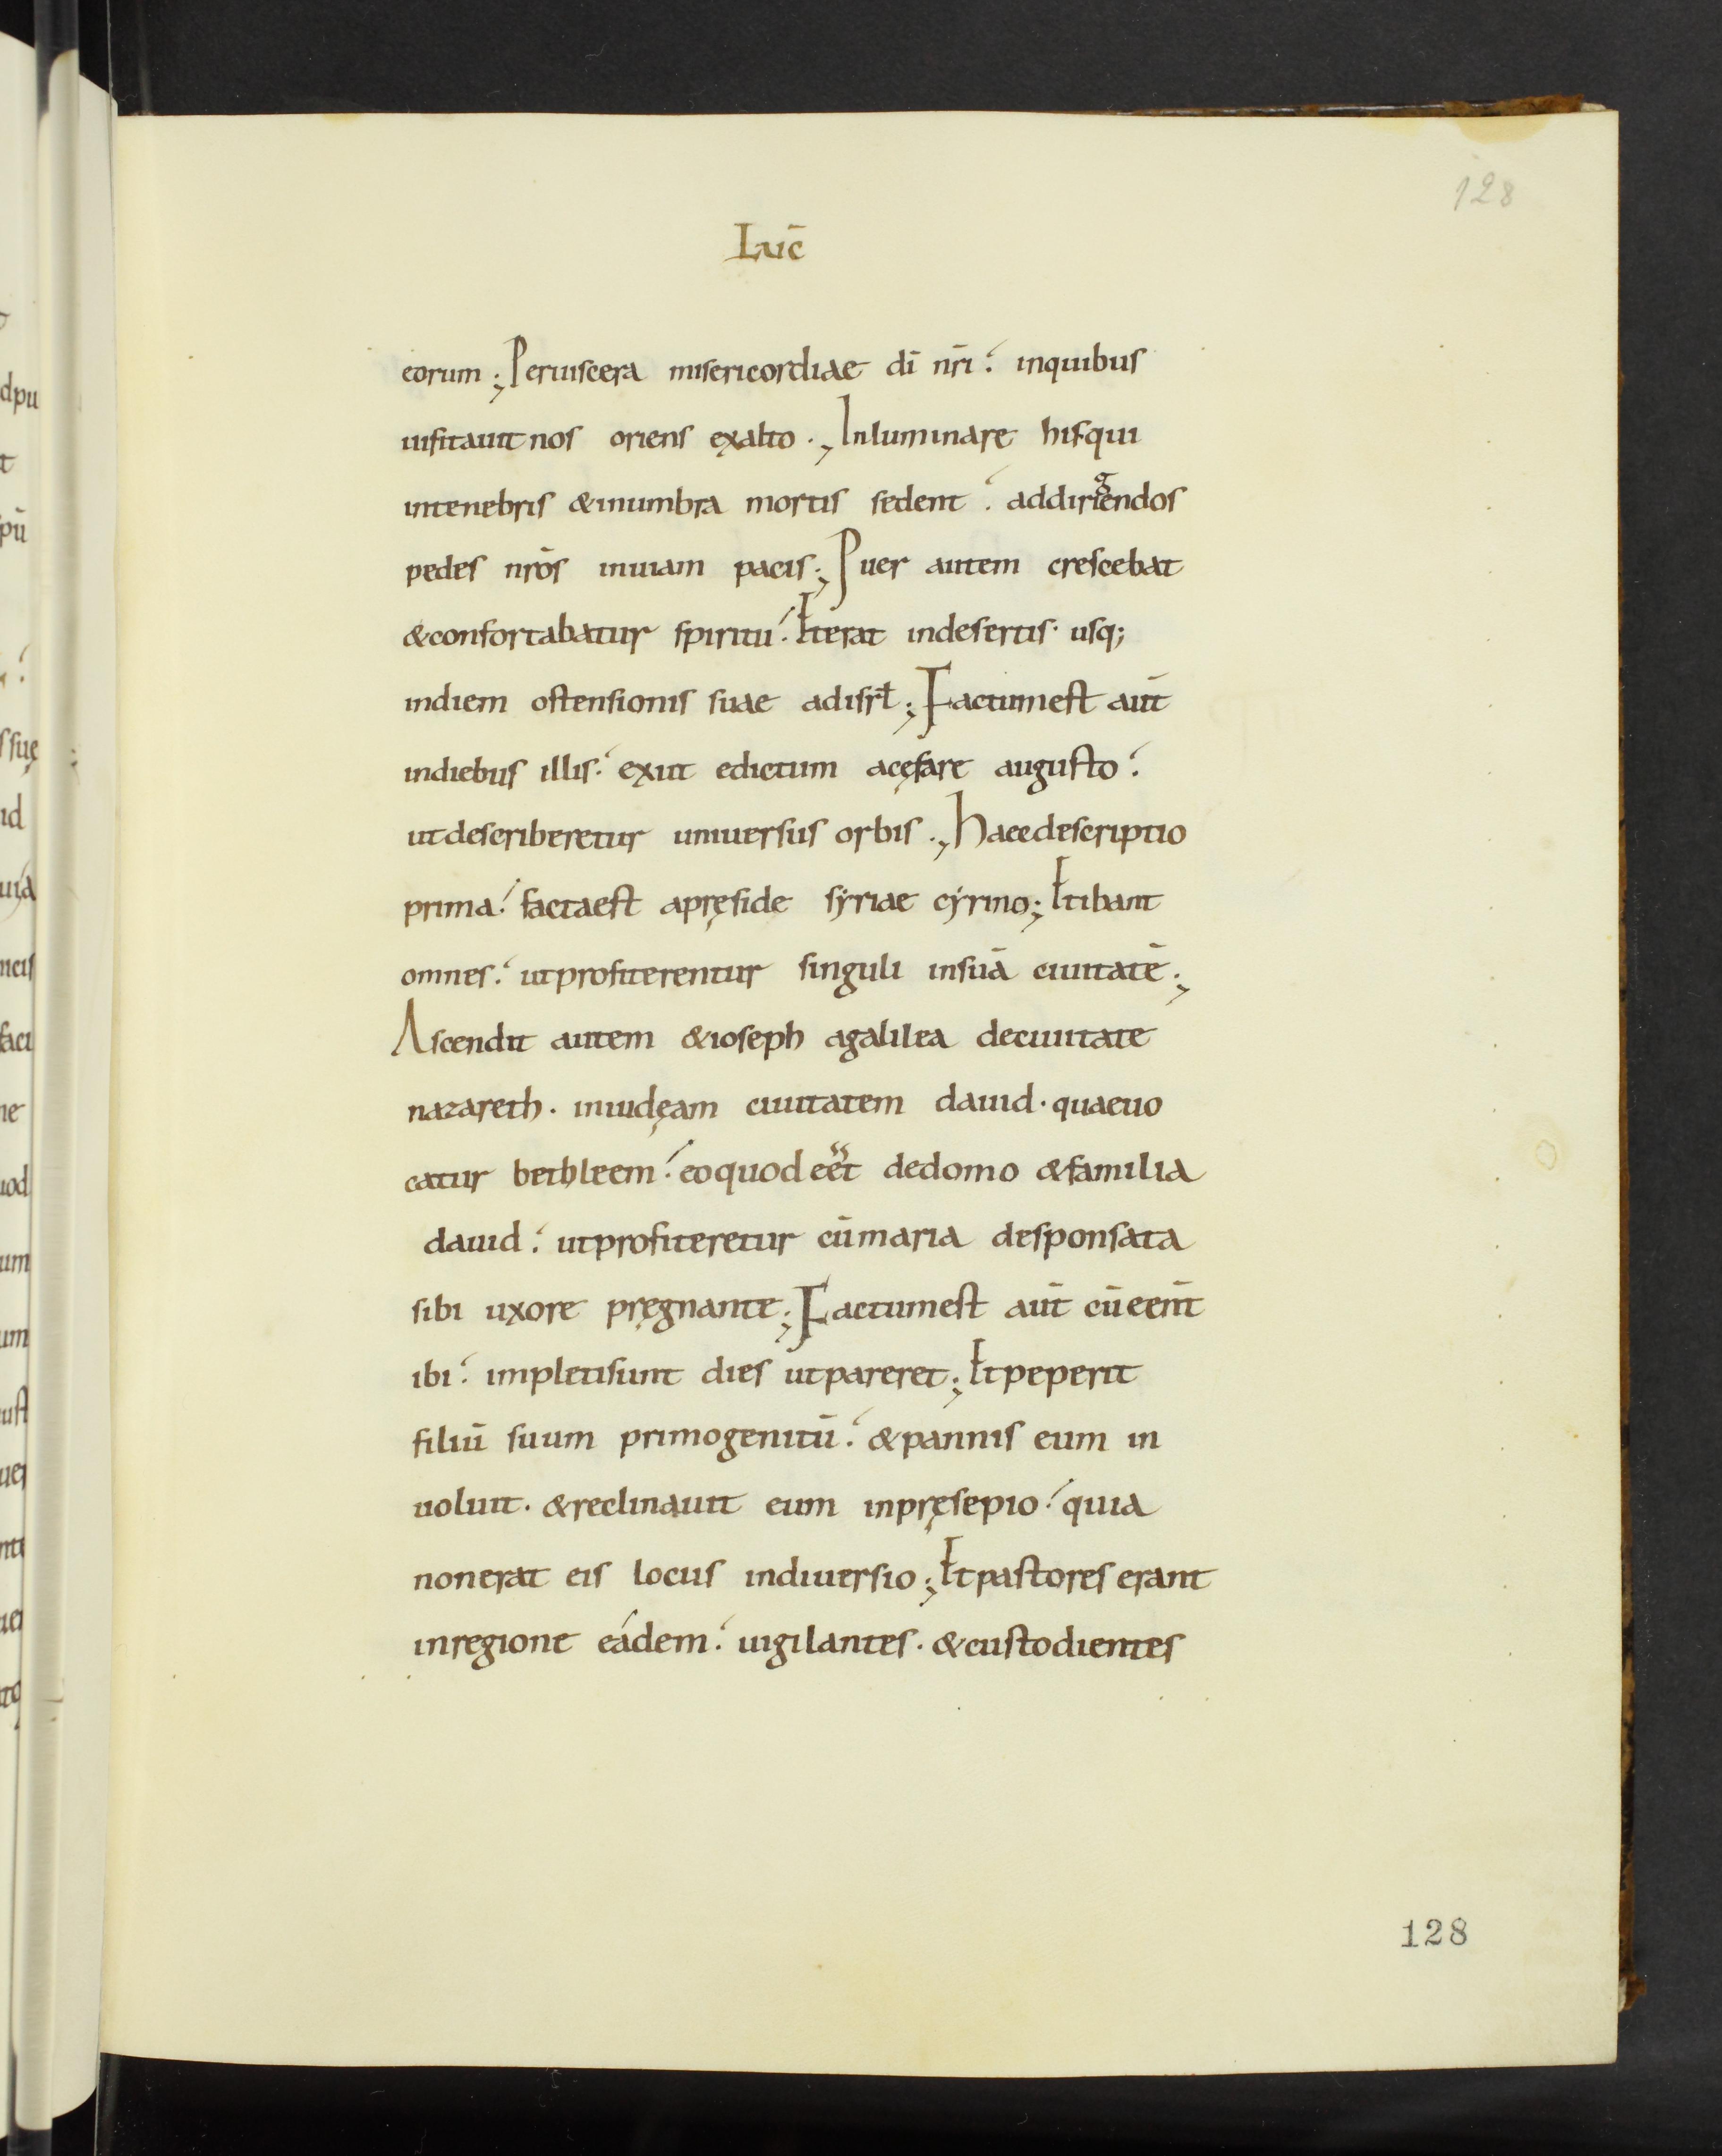 128
Luc̄
eorum; Peruiscera misericordiae dī nr̄i: inquibus
uisitauit nos oriens exalto; Inluminare hisqui
intenebris &inumbra mortis sedent: addirigendos
pedes nr̄os inuiam pacis; Puer autem crescebat
&confortabatur spiritu: Eterat indesertis· usq;
indiem ostensionis suae adisrł; Factumest aut̄
indiebus illis: exiit edictum acęsare augusto:
utdescriberetur uniuersus orbis; Haecdescriptio
prima: factaest apręside syriae cyrino; Etibant
omnes: utprofiterentur singuli insuā ciuitatē;
Ascendit autem &ioseph agalilea deciuitate
nazareth· iniudęam ciuitatem dauid· quaeuo
catur bethleem: eoquod eēt dedomo &familia
dauid: utprofiteretur cūmaria desponsata
sibi uxore pręgnante; Factumest aut̄ cūeen̄t
ibi: impletisunt dies utpareret; Etpeperit
filiū suum primogenitū: &pannis eum in
uoluit· &reclinauit eum inpręsepio: quia
nonerat eis locus indiuersio; Etpastores erant
inregione eádem: uigilantes· &custodientes
128